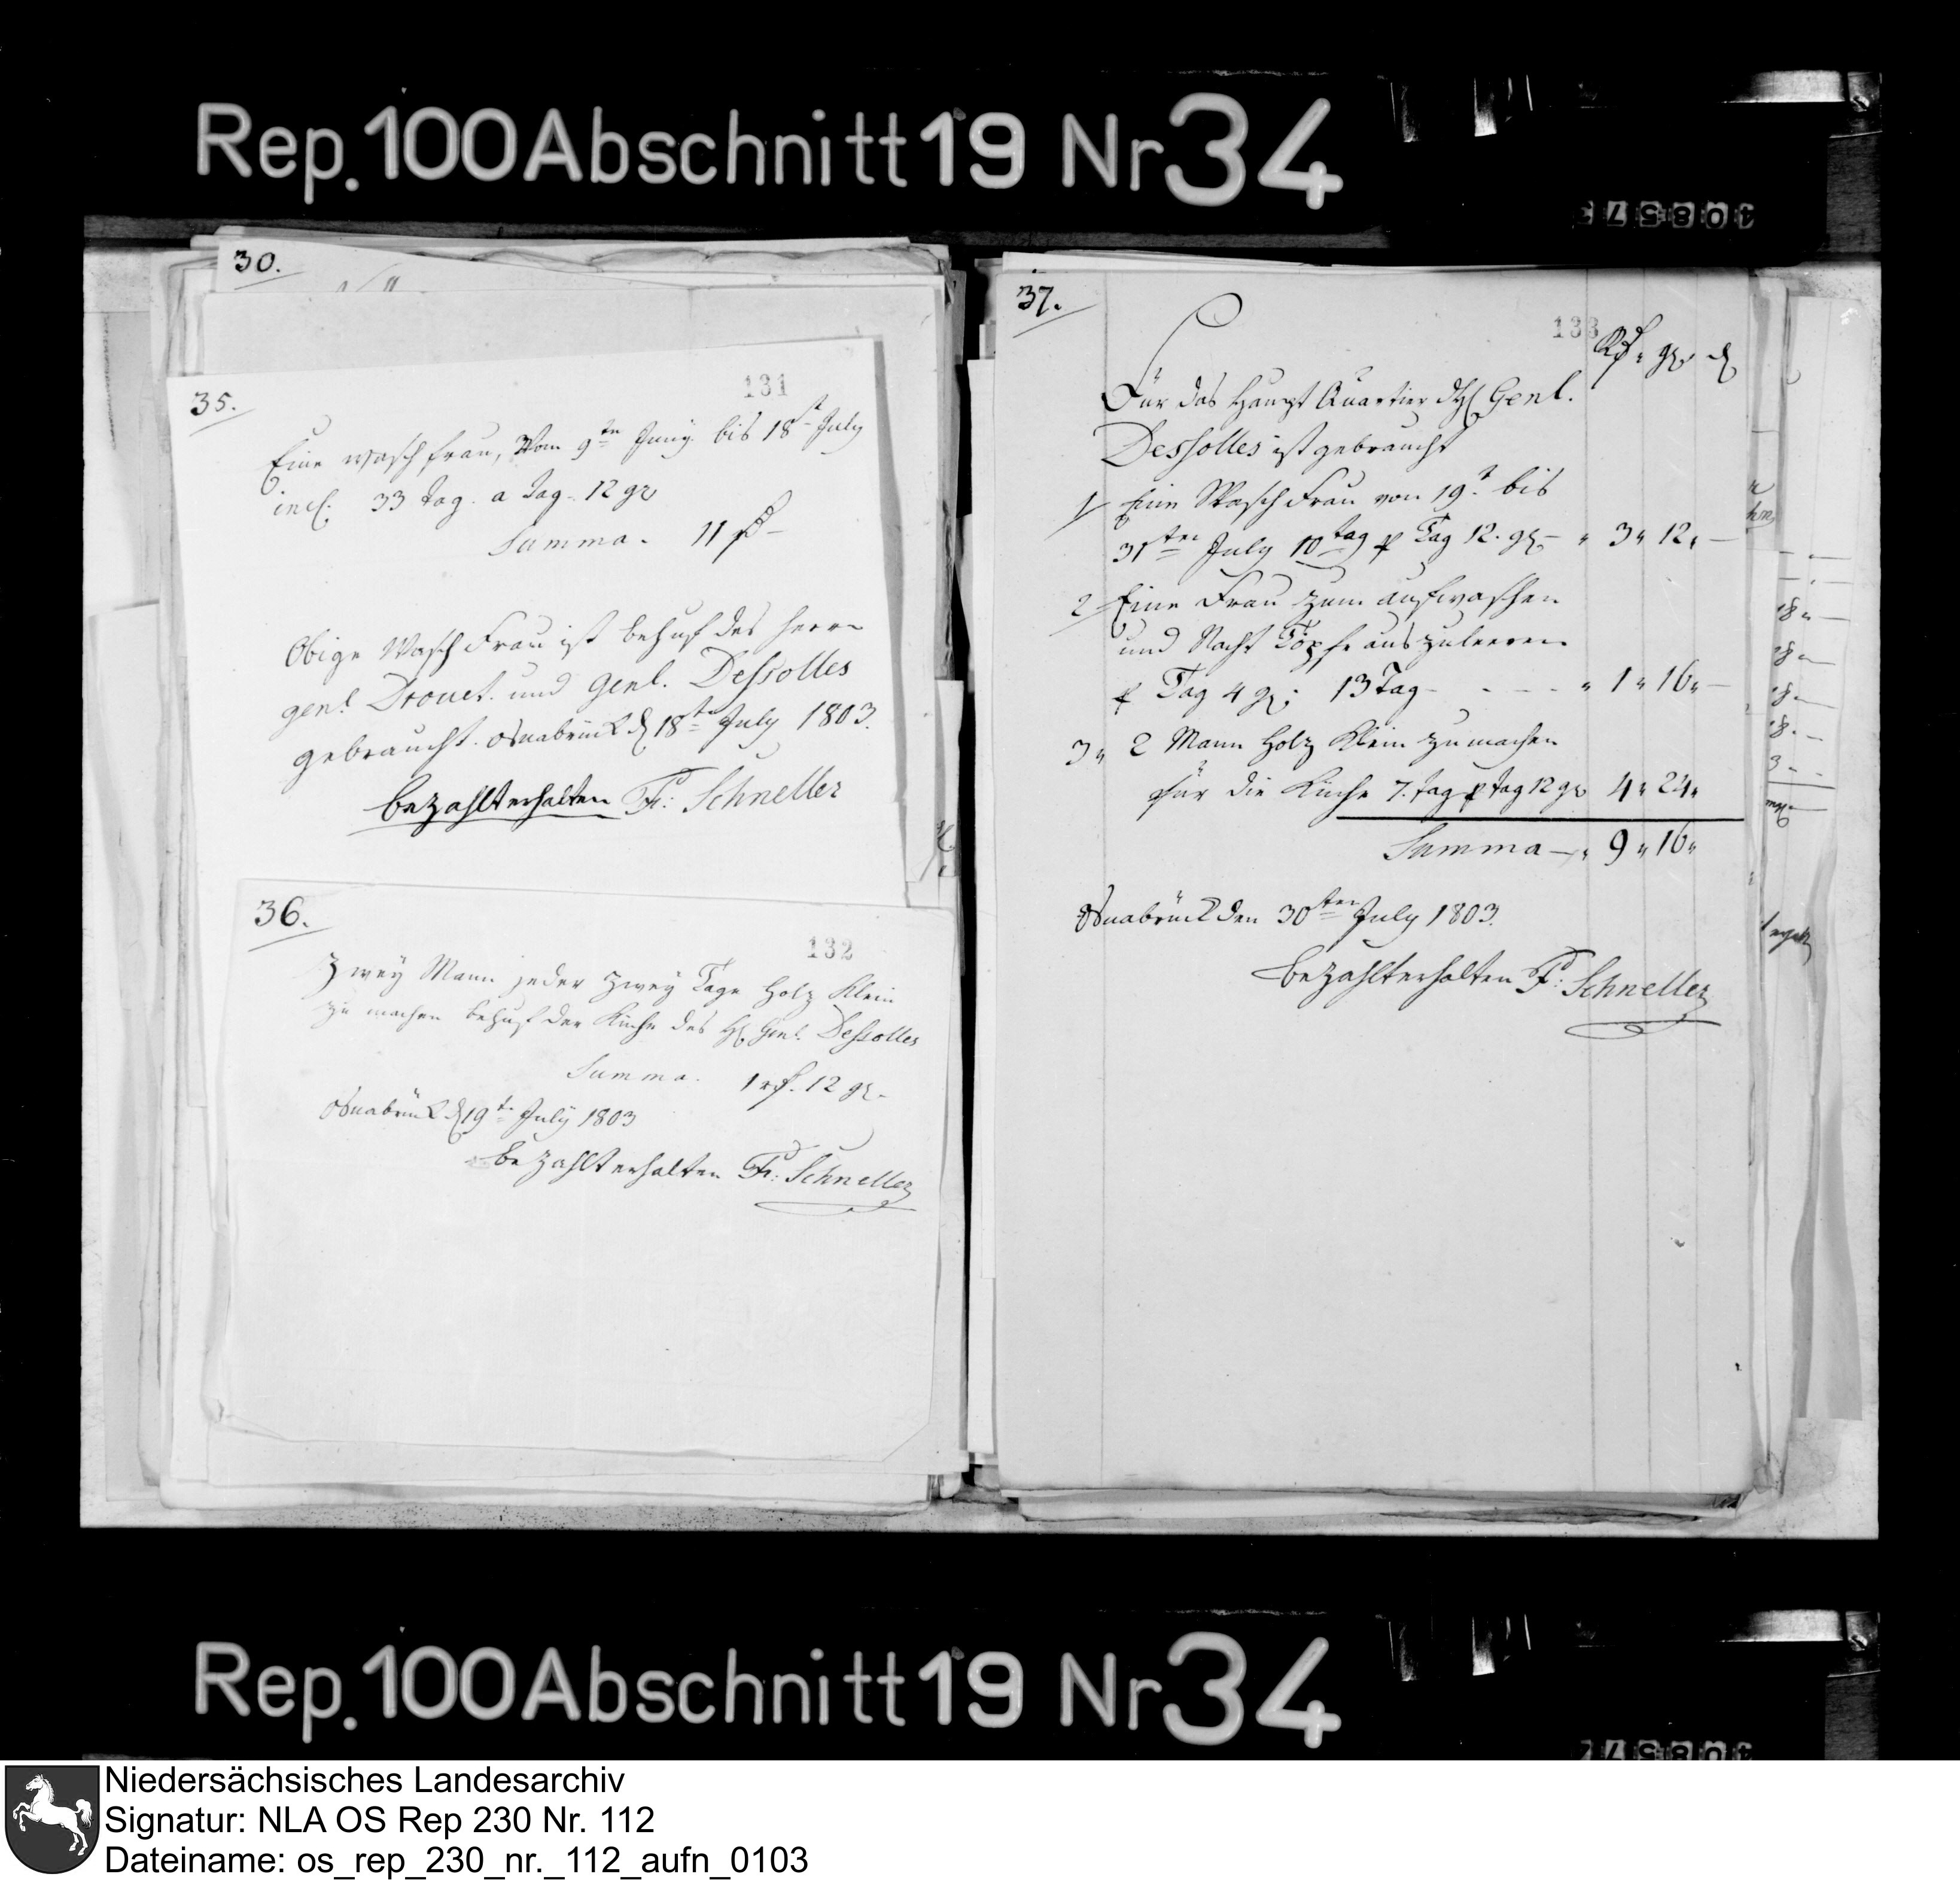 Rep. 100 Abschnitt 19 Nr 34
30.
35.
131
Eine waschfrau, Vom 9ten Juny bis 18t July
incl. 33 Tag. a Tag. 12 gr
Summa. 11
Obige Wasch Frau ist behuf des Herrn
genl. Drouet. und Genl. Dessolles
gebraucht. Osnabrück d 18te July 1803.
bezahlt erhalten Fr: Schneller
36.
132
Zwey Mann jeder zwey Tage Holz Klein
zu machen behuf der Küche des H Genl. Dessolles
Summa. 1 rt. 12 gr.
Osnabrück d 19te July 1803
bezahlt erhalten Fr: Schneller
37.
133
Rt. gr. d
Für das Haupt Quartier dH Genl.
Dessolles ist gebraucht
1 Eine Wasch Frau von 19t bis
31ten July 10 tag p Tag 12. gr. „ 3 „ 12 „ —
2 Eine Frau zum aufwaschen
und Nacht Töpfe aus zuleeren
p Tag 4 gr; 13 Tag - - - - „ 1 „ 16 „ —
3 „ 2 Mann Holz Klein zu machen
für die Küche 7. tag p tag 12 gr 4 „ 24 „
Summa — „ 9 „ 16 „
Osnabrück den 30ten July 1803.
bezahlt erhalten F: Schneller
Rep. 100 Abschnitt 19 Nr 34
Niedersächsisches Landesarchiv
Signatur: NLA OS Rep 230 Nr. 112
Dateiname: os_rep_230_nr._112_aufn_0103